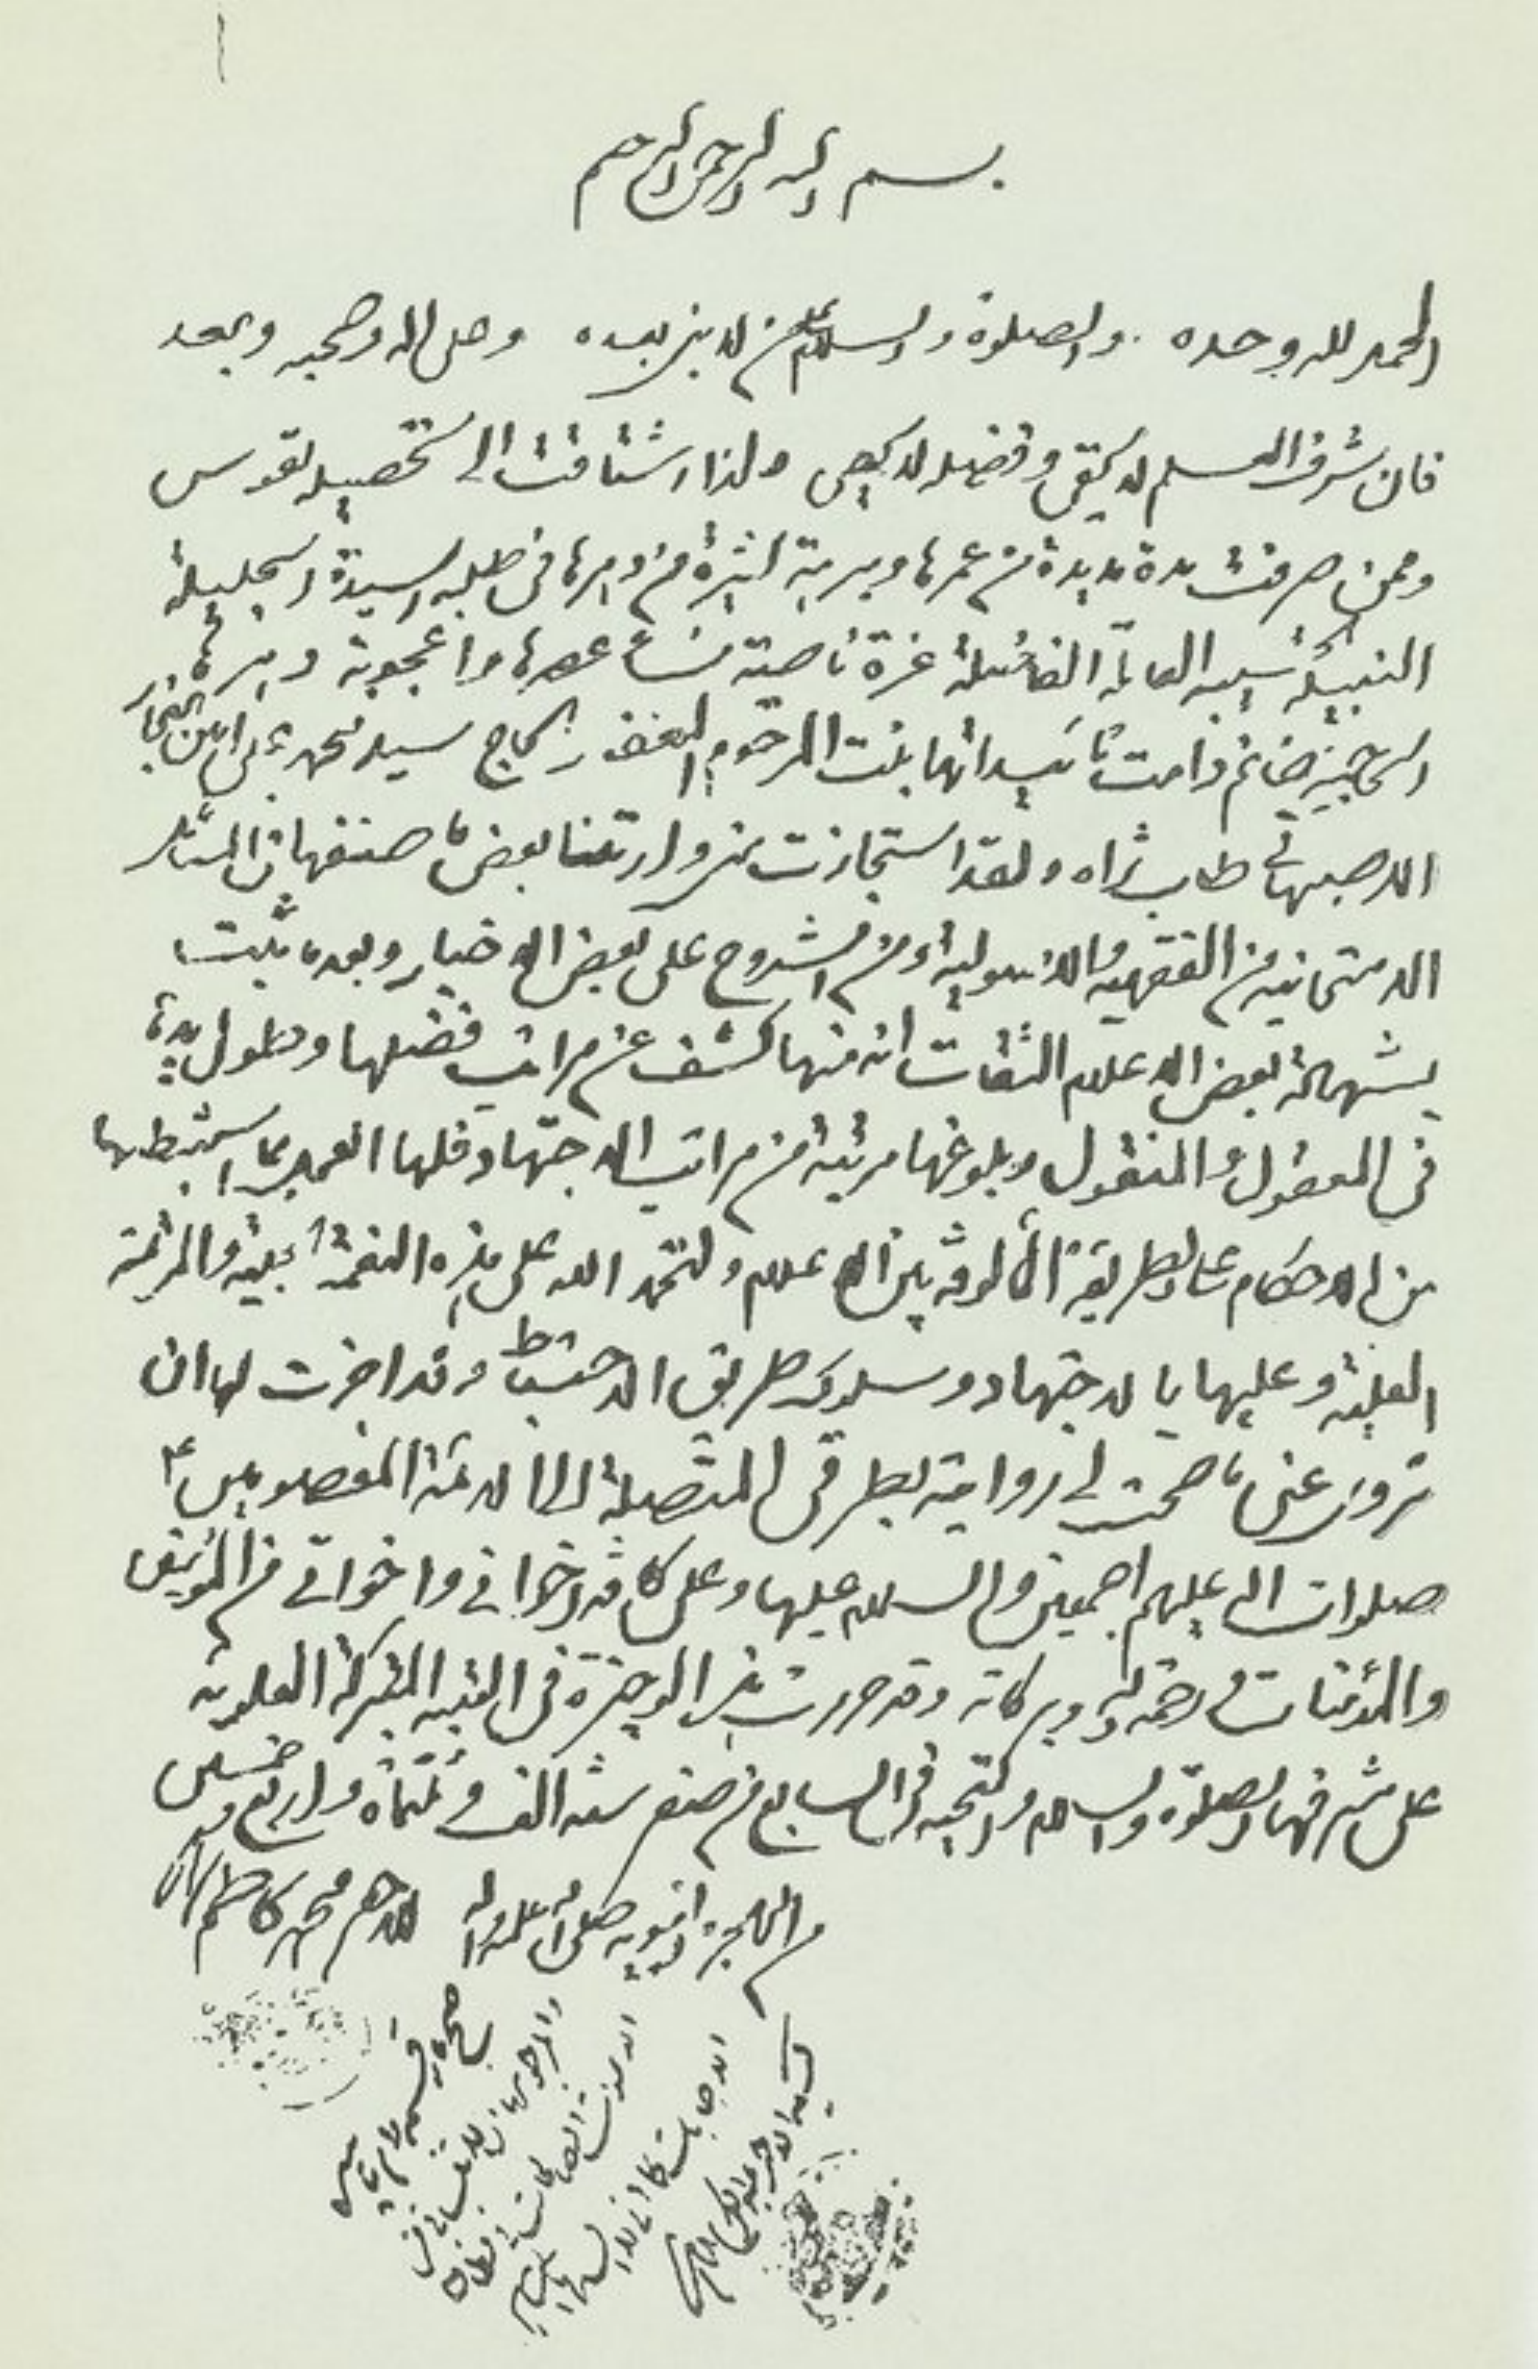 بسم الله الرحمن الرحيم
الحمد لله وحده والصلوة والسلام على من لا نبي بعده وعلى اله وصحبه وبعد
فان شرف العلم لا يخفى وفضله لا يحصى ولذا اشتاقت الى تحصيله نفوس
وممن صرفت مدة مديدة من عمرها وبرهة كثيرة من دهرها في طلبه السيدة الجليلة
النبيلة الحسيبة العالمة الفاضلة غرة ناصية نساء عصرها واعجوبة دهرها
الحاجية خانم دامت تأييداتها بنت المرحوم المغفور الحاج سيد محمد على امين التجار
الاصبهاني طاب ثراه ولقد استجازت مني وارتنا بعض ما صنفها في المسائل
الامتحانية من الفقهية والاصولية ومن الشروح على بعض الاخبار وبعد ما ثبت
بشهادة بعض الاعلام الثقات انه منها كشف عن مراتب فضلها وطول يدها
في المعقول والمنقول وبلوغها مرتبة من مراتب الاجتهاد فلها العمل بما استنبطها
من الاحكام على الطريقة المألوفة بين الاعلام ولتحمد الله على هذه النعمة الجلية والمرتبة
العلية وعليها بالاجتهاد وسلوك طريق الاحتياط وقد اجزت لها ان
تروى عنى ما صحت لي روايته بطرقي المتصلة الى الائمة المعصومين ع
صلوات الله عليهم اجمعين والسلام عليها وعلى كافة اخواني واخواتي من المؤمنين
والمؤمنات ورحمة الله وبركاته وقد حررت هذه الوجيزة في العتبة المباركة العلوية
على مشرفها الصلوة والسلام والتحية في السابع من صفر سنة الف وثلثمائة واربع وخمسين
من الهجرة النبوية صلى الله عليه واله الاحقر محمد كاظم